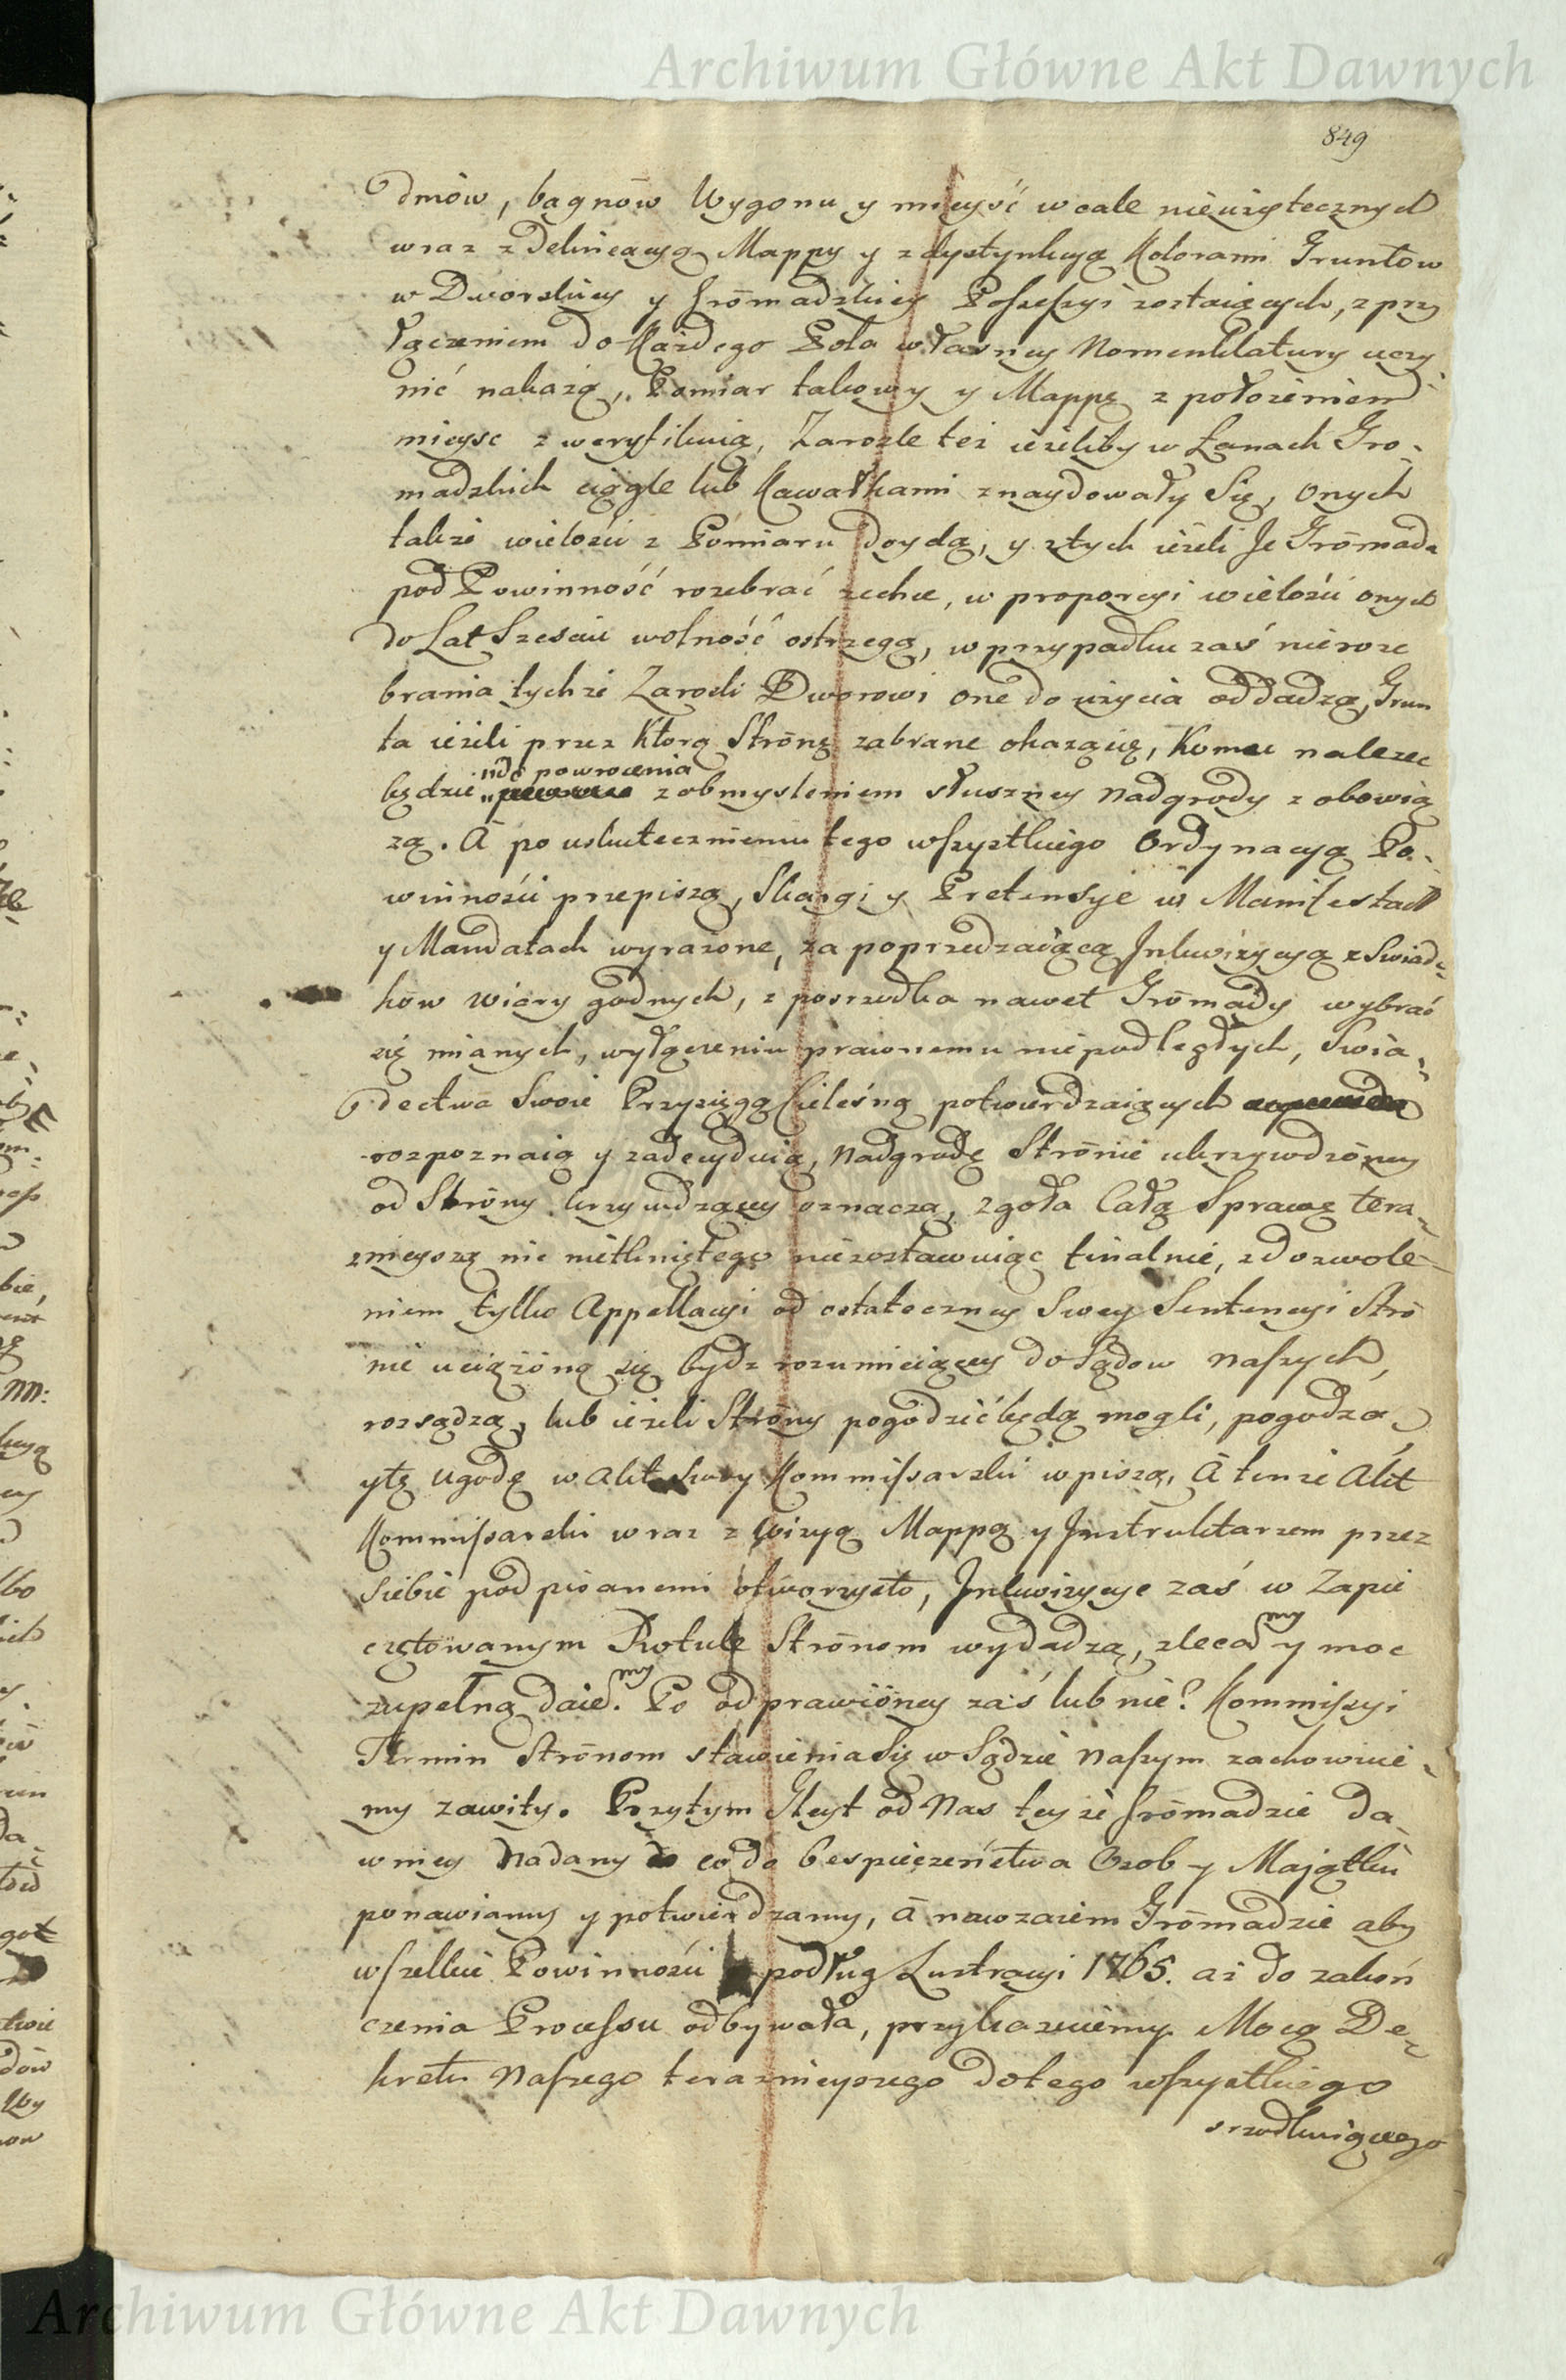 Archiwum Główne Akt Dawnych
849
dmów, bagnōw Wygonu y mieysć wcale nieużytecznych
wraz z Delineacyą Mappy y z dystynkcyą Kolorami Gruntōw
w Dworskiey y Grōmadzkiey Possessyi zostaiących, z przy
łączeniem do Każdego Pola własney Nomenklatury uczy
nić nakażą, Pomiar takowy y Mappę z położeniem
mieysc zweryfikuią, Zarosle też ieżeliby w Łanach Gro-
madzkich ciągle lub Kawałkami znaydowały się, onych
także wielości z Pomiaru doydą, y z tych ieżeli Je Grōmada
pod Powinność rozebrać zechce, w proporcyi wielości onych
do Lat Szesciu wolność ostrzegą, w przypadku zaś nieroze
brania tychże Zarosli Dworowi one do użycia oddadzą, Grun
ta ieżeli przez Ktorą Strōnę zabrane okażą się, Komu należec
będzie do powrocenia z obmysleniem słuszney Nadgrody z obowią
żą. A po uskutecznieniu tego wszystkiego Ordynacyą Po-
winności przepiszą, Skargi y Pretensye w Manifestach
y Mandatach wyrażone, za poprzedzaiącą Jnkwizycyą z Swiad-
kōw wiary godnych, z posrzodka nawet Grōmady wybrać
się mianych, wyłączeniu prawnemu niepodległych, Swia-
dectwa Swoie Przysięgą Cieleśną potwierdzaiących
rozpoznaią y zadecyduią, Nadgrodę Strōnie ukrzywdzōney
od Strōny krzywdzącey oznaczą, zgoła Całą Sprawę tera-
znieyszą nic nietkniętego niezostawuiąc finalnie, z dozwole-
niem tylko Appellacyi od ostateczney Swey Sentencyi Strō
nie uciążōną się bydz rozumieiącey do Sądow Naszych,
rozsądzą, lub ieżeli Strōny pogodzić będą mogli, pogodzą
y tę Ugodę w Akt Swoy Kommissarski wpiszą, A tenże Akt
Kommissarski wraz z Wizyą Mappą y Jnstruktarzem przez
siebie podpisanemi otworzysto, Jnkwizycye zaś w Zapie
czętowanym Rotule Strōnom wydadzą, zlecamy y moc
zupełną daiemy. Po odprawiōney zaś lub nie? Kommissyi
Termin Strōnom stawienia się w Sądzie Naszym zachowuie-
my zawity. Przytym Gleyt od Nas teyże Grōmadzie da-
wniey Nadany co do bespieczeństwa Osob y Majątku
ponawiamy y potwierdzamy, a nawzaiem Grōmadzie aby
wszelkie Powinności podług Lustracyi 1765. aż do zakoń
czenia Processu odbywała, przykazuiemy Mocą De-
kretu Naszego teraznieyszego do tego wszystkiego
srzodkuiącego
Archiwum Główne Akt Dawnych